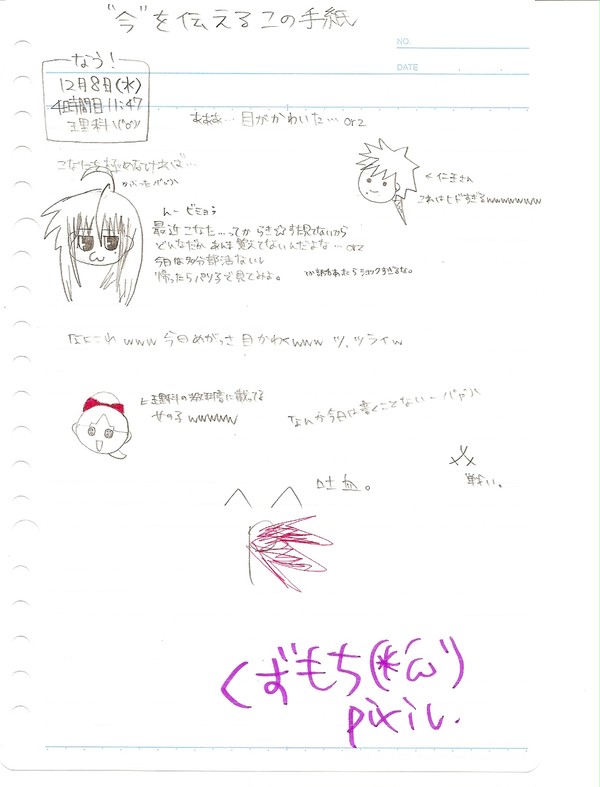 "今"を伝えるこの手紙
NO.
DATE
なう!
12月8日(水)
4時間目 11:47
理科
あああ… 目がかわいた… orz
こなたを極めなければ…
< 仁王さん
これはヒドすぎるwwwwwwww
んー ビミョう
最近こなた…ってからき☆すた見てないから
どんなだかあんま覚えてないんだよな… orz
今日は多分部活ないし
帰ったらパソ子で見てみよ。
なにこれwww 今日めがっさ目かわくwww ツ、ツライw
理科の教科書に載ってる
女の子wwwww
なんか今日は書くことないー
吐血。
戦い。
くずもち(*´ω`)
pixiv.